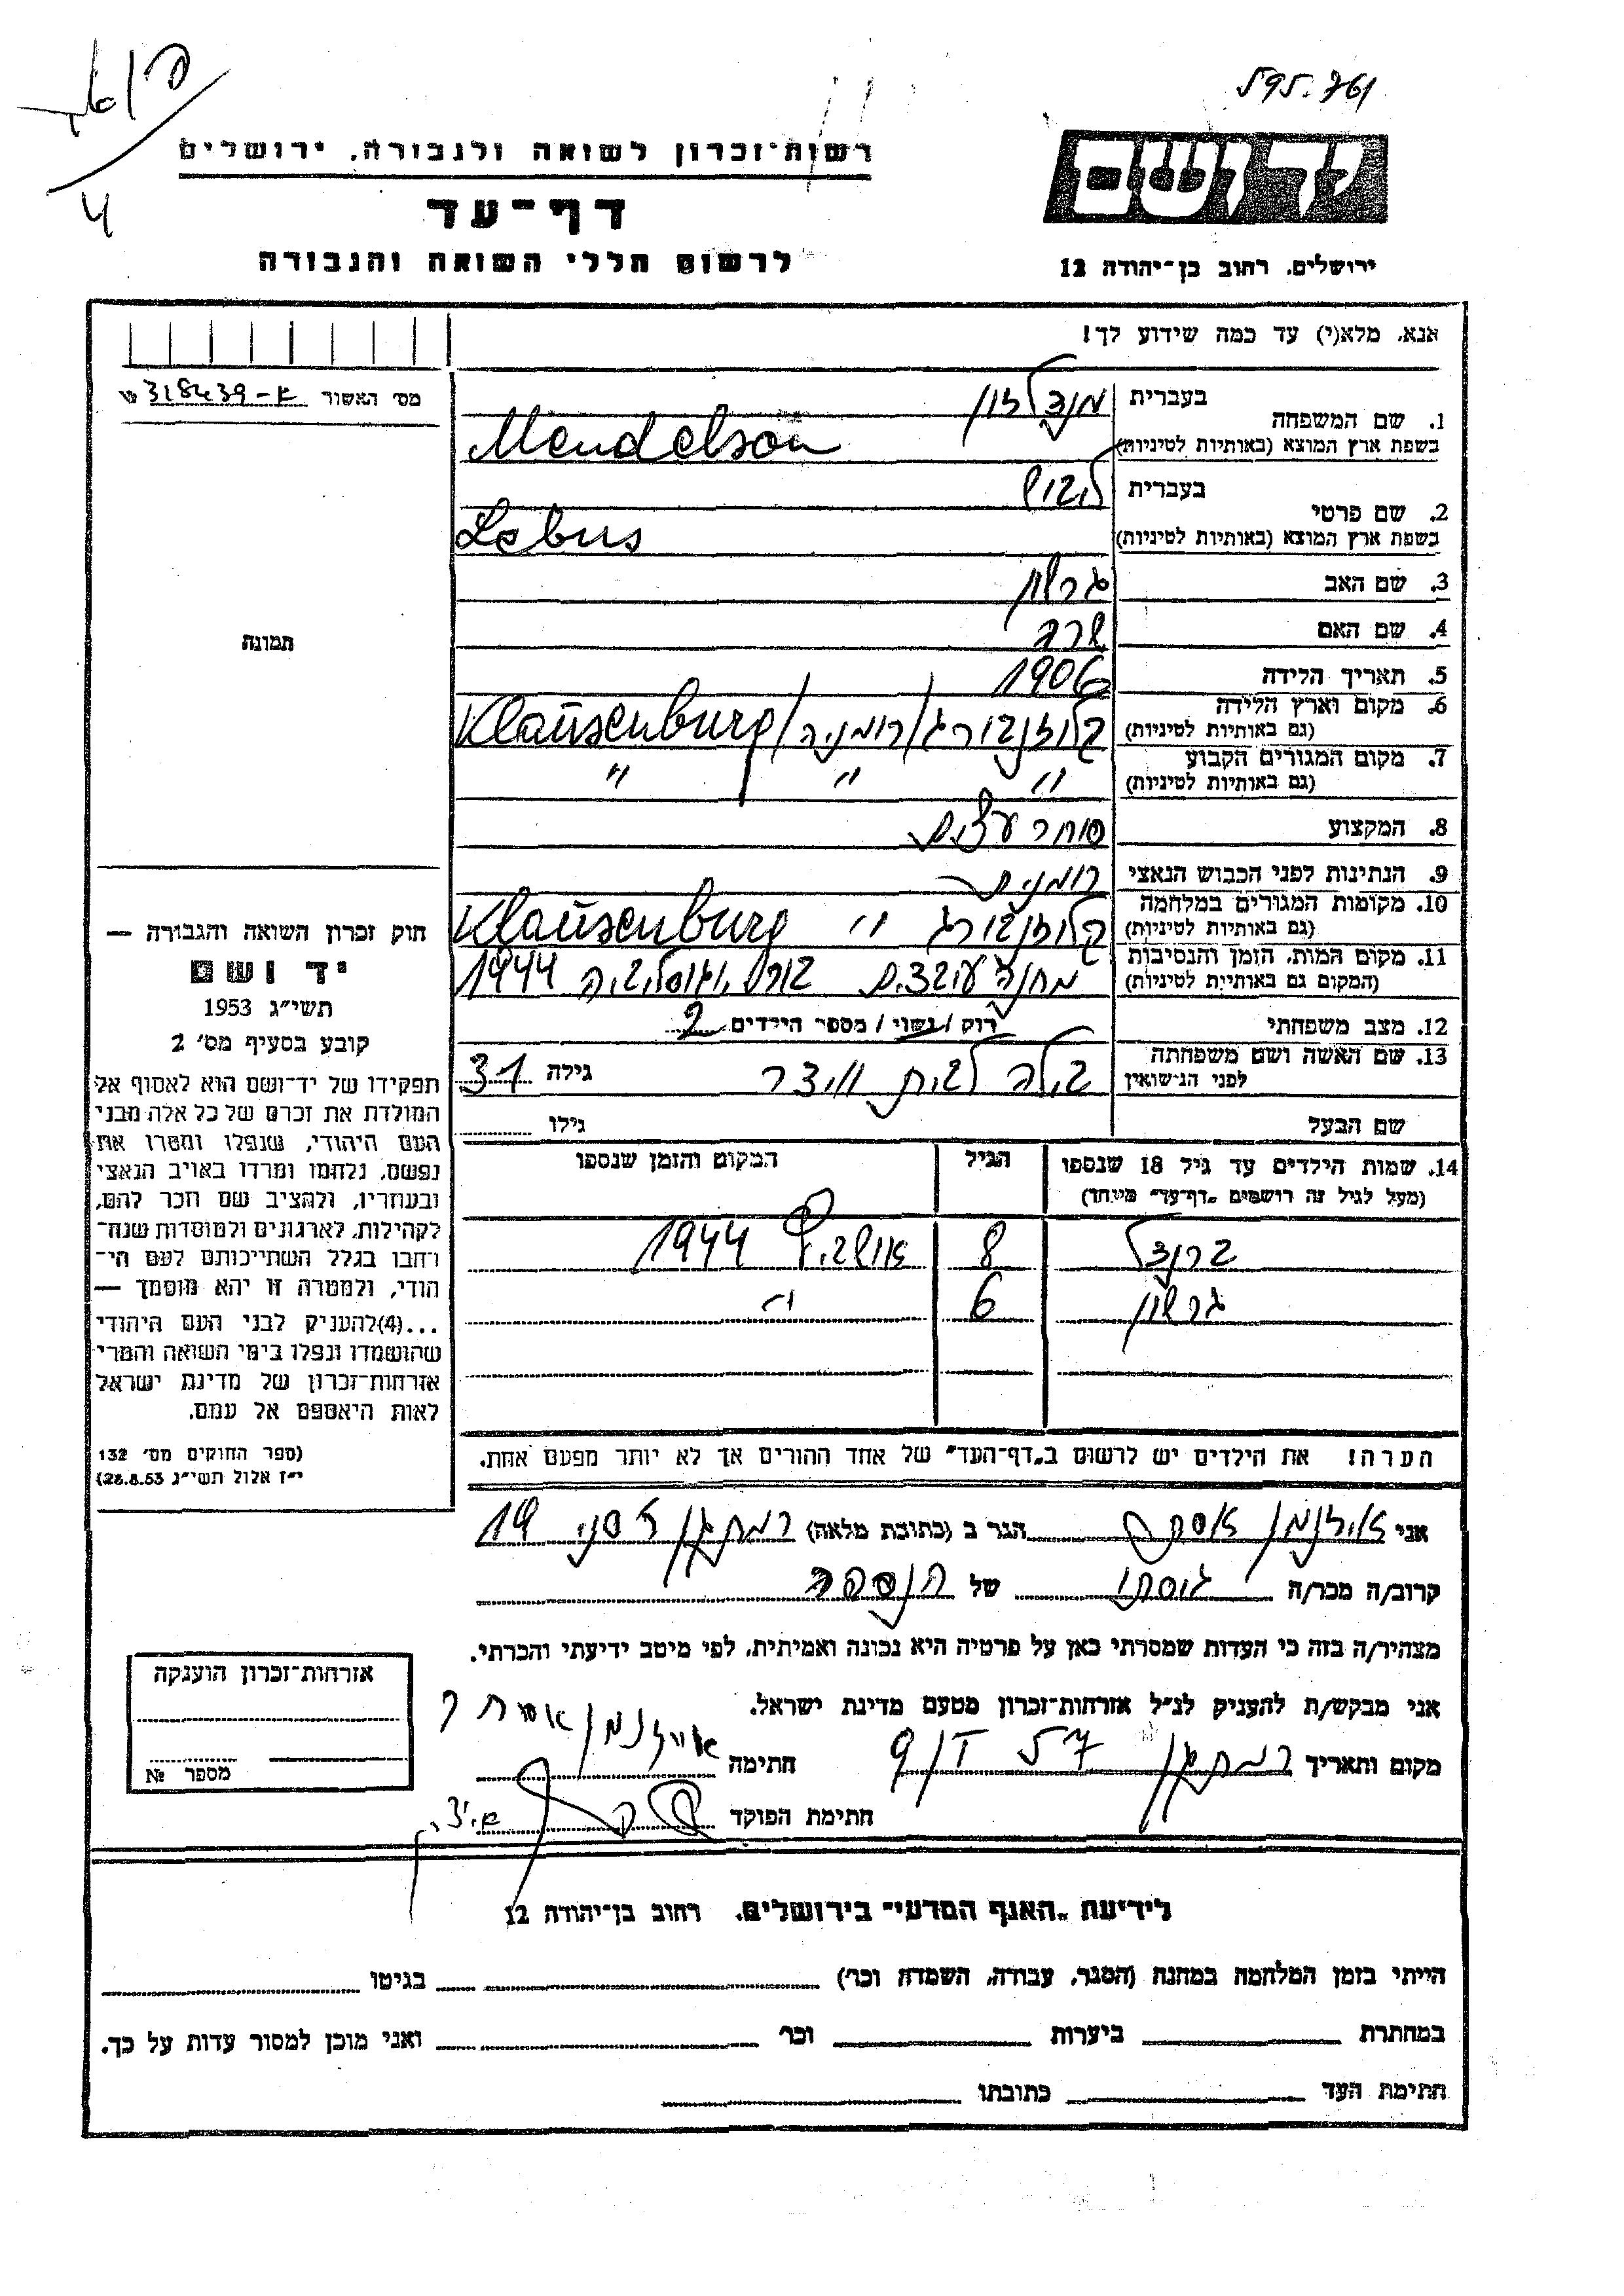 595.761
רשות־זכרון לשואה ולגבורה, ירושלים
יד ושם
דף־עד
לרשום חללי השואה והגבורה
ירושלים, רחוב בן־יהודה 12
אנא, מלא(י) עד כמה שידוע לך!
מס' האשור 318439-א
1. שם המשפחה בעברית מנדלזון
בשפת ארץ המוצא (באותיות לטיניות) Mendelson
2. שם פרטי בעברית
בשפת ארץ המוצא (באותיות לטיניות) Lebus
3. שם האב גרשון
4. שם האם שרה
5. תאריך הלידה 1906
6. מקום וארץ הלידה (גם באותיות לטיניות) קלוזנבורג/רומניה/Klausenburg
7. מקום המגורים הקבוע (גם באותיות לטיניות) " " "
8. המקצוע סוחר עצים
9. הנתינות לפני הכבוש הנאצי רומנית
10. מקומות המגורים במלחמה (גם באותיות לטיניות) קלוזנבורג " Klausenburg
11. מקום המות, הזמן והנסיבות (המקום גם באותיות לטיניות) מחנה עובדים 1944
12. מצב משפחתי רוק/נשוי/מספר הילדים 2
13. שם האשה ושם משפחתה לפני הנשואין בילה לבית גילה 31
שם הבעל גילו
14. שמות הילדים עד גיל 18 שנספו הגיל המקום והזמן שנספו
(מעל לגיל זה רושמים „דף־עד" מיוחד)
ברנדל 8 אושביץ 1944
גרשון 6 "
הערה! את הילדים יש לרשום ב„דף־העד" של אחד ההורים אך לא יותר מפעם אחת.
תמונה
חוק זכרון השואה והגבורה —
יד ושם
תשי"ג 1953
קובע בסעיף מס' 2
תפקידו של יד־ושם הוא לאסוף אל
המולדת את זכרם של כל אלה מבני
העם היהודי, שנפלו ומסרו את
נפשם, נלחמו ומרדו באויב הנאצי
ובעוזריו, ולהציב שם וזכר להם,
לקהילות, לארגונים ולמוסדות שנח־
רבו בגלל השתייכותם לעם הי־
הודי, ולמטרה זו יהא מוסמך —
...(4)להעניק לבני העם היהודי
שהושמדו ונפלו בימי השואה והמרי
אזרחות־זכרון של מדינת ישראל
לאות היאספם אל עמם.
(ספר החוקים מס' 132
י"ז אלול תשי"ג 28.8.53)
אני איזנמן הגר ב (כתובת מלאה) רמת גן 19
קרוב/ה מכר/ה גיסתו של הנספה
מצהיר/ה בזה כי העדות שמסרתי כאן על פרטיה היא נכונה ואמיתית, לפי מיטב ידיעתי והכרתי.
אני מבקש/ת להעניק לנ"ל אזרחות־זכרון מטעם מדינת ישראל.
מקום ותאריך רמת גן 9 I 57 חתימה איזנמן
חתימת הפוקד
אזרחות־זכרון הוענקה
מספר №
לידיעת „האגף המדעי" בירושלים, רחוב בן־יהודה 12
הייתי בזמן המלחמה במחנה (הסגר, עבודה, השמדה וכו') בגיטו
במחתרת ביערות וכו' ואני מוכן למסור עדות על כך.
חתימת העד כתובתו